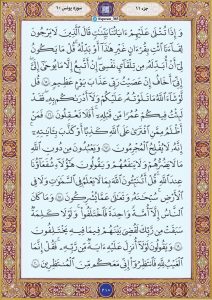 جزء ١١
سوره یونس ١٠
وَإِذَا تُتْلَىٰ عَلَيْهِمْ ءَايَاتُنَا بَيِّنَٰتٍ قَالَ ٱلَّذِينَ لَا يَرْجُونَ
لِقَآءَنَا ٱئْتِ بِقُرْءَانٍ غَيْرِ هَٰذَآ أَوْ بَدِّلْهُ قُلْ مَا يَكُونُ
لِىٓ أَنْ أُبَدِّلَهُۥ مِن تِلْقَآئِ نَفْسِىٓ إِنْ أَتَّبِعُ إِلَّا مَا يُوحَىٰٓ إِلَىَّ
إِنِّىٓ أَخَافُ إِنْ عَصَيْتُ رَبِّى عَذَابَ يَوْمٍ عَظِيمٍ ١٥ قُل
لَّوْ شَآءَ ٱللَّهُ مَا تَلَوْتُهُۥ عَلَيْكُمْ وَلَآ أَدْرَىٰكُم بِهِۦ فَقَدْ
لَبِثْتُ فِيكُمْ عُمُرًا مِّن قَبْلِهِۦٓ أَفَلَا تَعْقِلُونَ ١٦ فَمَنْ
أَظْلَمُ مِمَّنِ ٱفْتَرَىٰ عَلَى ٱللَّهِ كَذِبًا أَوْ كَذَّبَ بِـَٔايَٰتِهِۦٓ
إِنَّهُۥ لَا يُفْلِحُ ٱلْمُجْرِمُونَ ١٧ وَيَعْبُدُونَ مِن دُونِ ٱللَّهِ
مَا لَا يَضُرُّهُمْ وَلَا يَنفَعُهُمْ وَيَقُولُونَ هَٰٓؤُلَآءِ شُفَعَٰٓؤُنَا
عِندَ ٱللَّهِ قُلْ أَتُنَبِّـُٔونَ ٱللَّهَ بِمَا لَا يَعْلَمُ فِى ٱلسَّمَٰوَٰتِ وَلَا فِى
ٱلْأَرْضِ سُبْحَٰنَهُۥ وَتَعَٰلَىٰ عَمَّا يُشْرِكُونَ ١٨ وَمَا كَانَ
ٱلنَّاسُ إِلَّآ أُمَّةً وَٰحِدَةً فَٱخْتَلَفُوا۟ وَلَوْلَا كَلِمَةٌ
سَبَقَتْ مِن رَّبِّكَ لَقُضِىَ بَيْنَهُمْ فِيمَا فِيهِ يَخْتَلِفُونَ ١٩
وَيَقُولُونَ لَوْلَآ أُنزِلَ عَلَيْهِ ءَايَةٌ مِّن رَّبِّهِۦ فَقُلْ إِنَّمَا
ٱلْغَيْبُ لِلَّهِ فَٱنتَظِرُوٓا۟ إِنِّى مَعَكُم مِّنَ ٱلْمُنتَظِرِينَ ٢٠
٢١٠